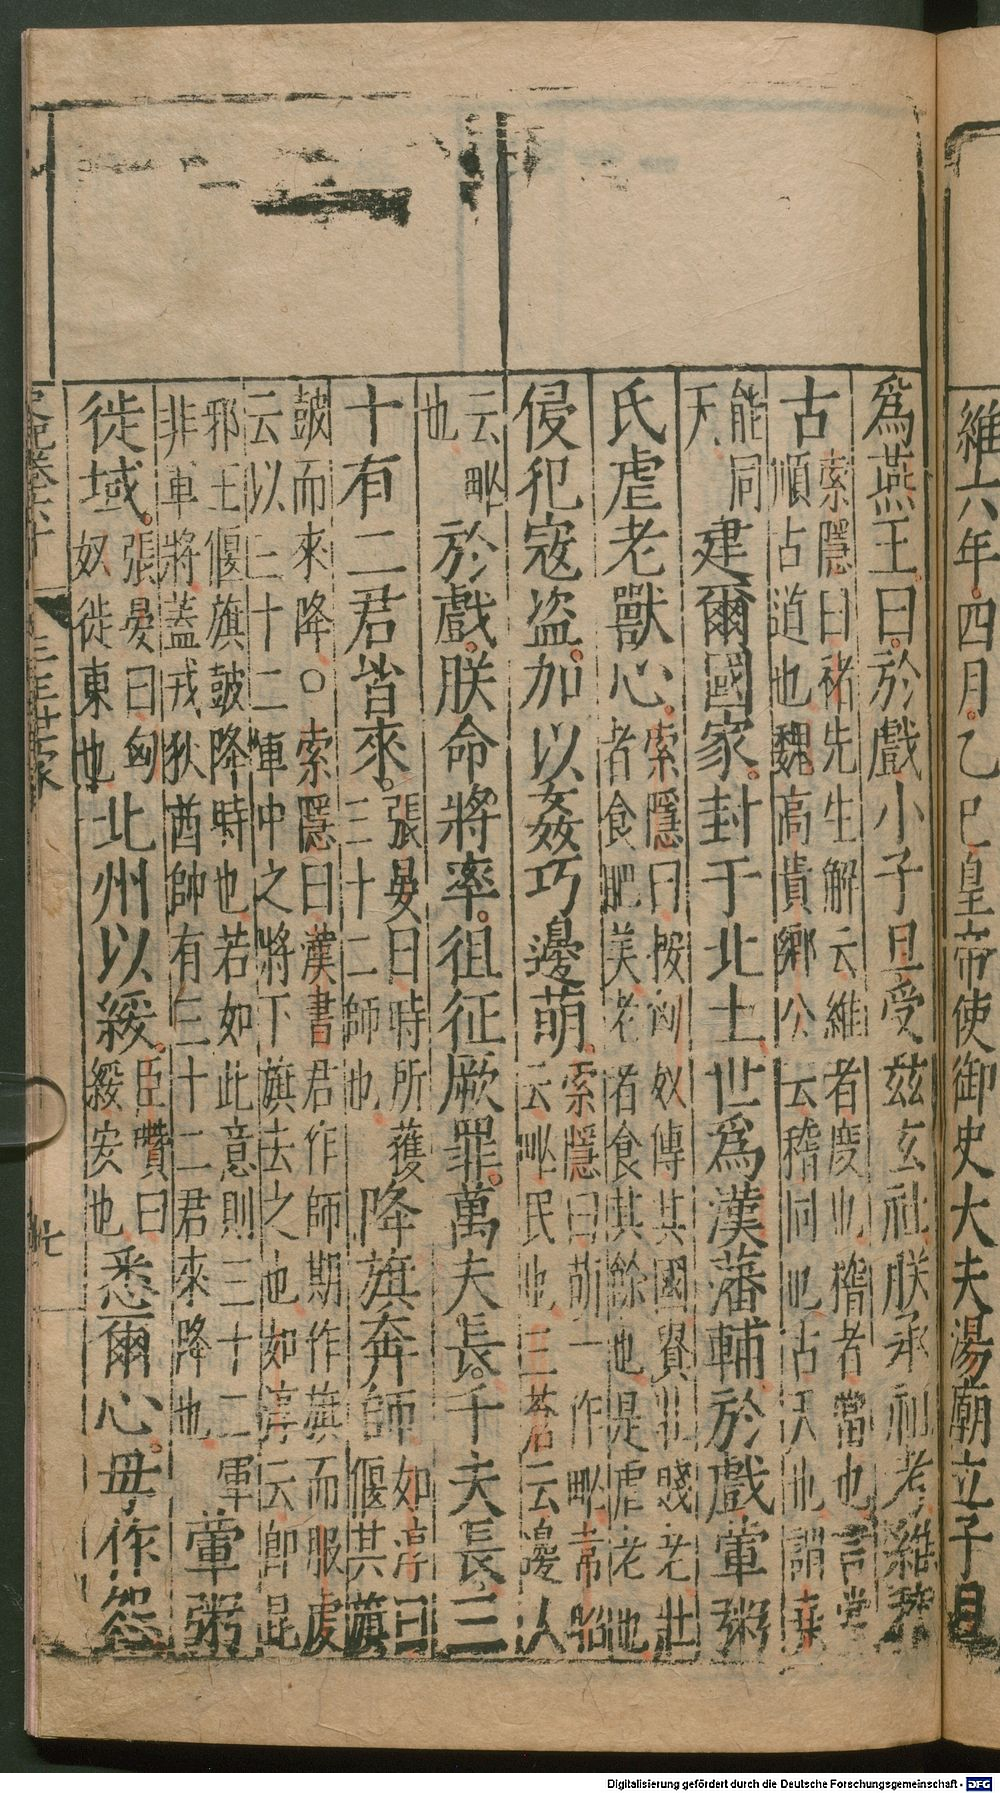 維六年四月乙巳皇帝使御史大夫湯廟立子旦
爲燕王曰於戲小子旦受兹玄社朕承祖考維稽
古索隱曰禇先生解云維者度也稽者當也言當
順古道也魏高貴鄉公云稽同也也謂堯
能同
天建爾國家封于北土世爲漢藩輔於戲葷粥
氏虐老獸心索隱曰按匈奴傳其國貴壯賤老壯
者食肥美老者食其餘也是虐老也
侵犯寇盗加以姦巧邊萌索隱曰萌一作甿韋昭
云甿民也三蒼云邊人
云甿
也於戲朕命將率徂征厥罪萬夫長千夫長三
十有二君皆來張晏曰時所獲
三十二帥也降旗奔師如淳曰
偃其旗
鼓而來降○索隱曰漢書君作師期作旗而服虔
云以三十二軍中之將下旗去之也如淳云即昆
邪王偃旗鼓降時也若如此意則三十二軍
非軍將蓋戎狄酋帥有三十二君來降也葷粥
徙域張晏曰匈
奴徙東也北州以綏臣瓚曰
綏安也悉爾心毋作怨
三王世家
Digitalisierung gefördert durch die Deutsche Forschungsgemeinschaft - DFG